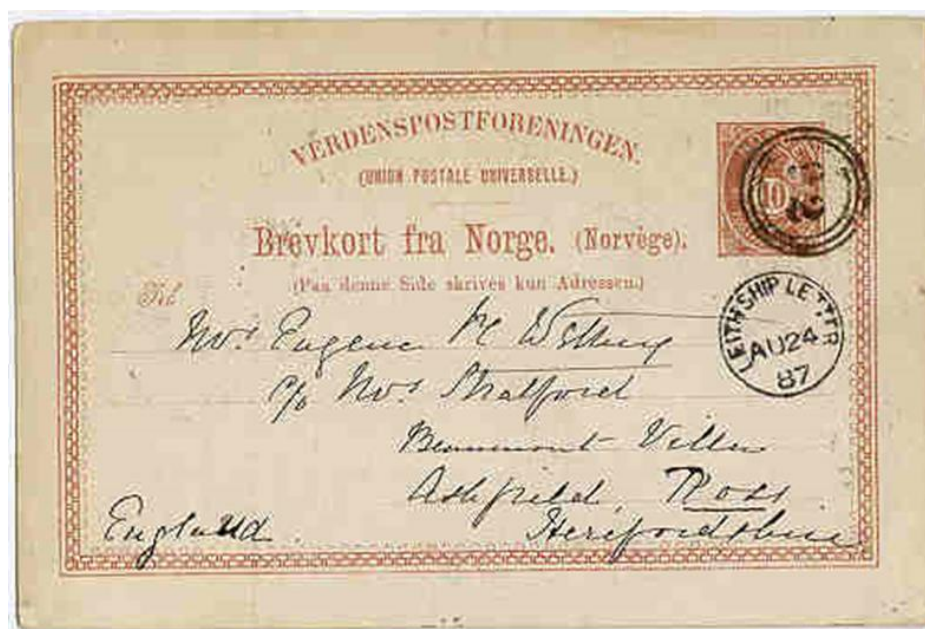 VERDENSPOSTFORENINGEN.
(UNION POSTALE UNIVERSELLE.)
10
Brevkort fra Norge. (Norvège).
(Paa denne Side skrives kun Adressen.)
Til
LEITH SHIP LETTER
AU 24
87
Mrs Eugene M
c/o Mrs Stratford
Beaumont Villa
Ashfield, Ross
Herefordshire
England